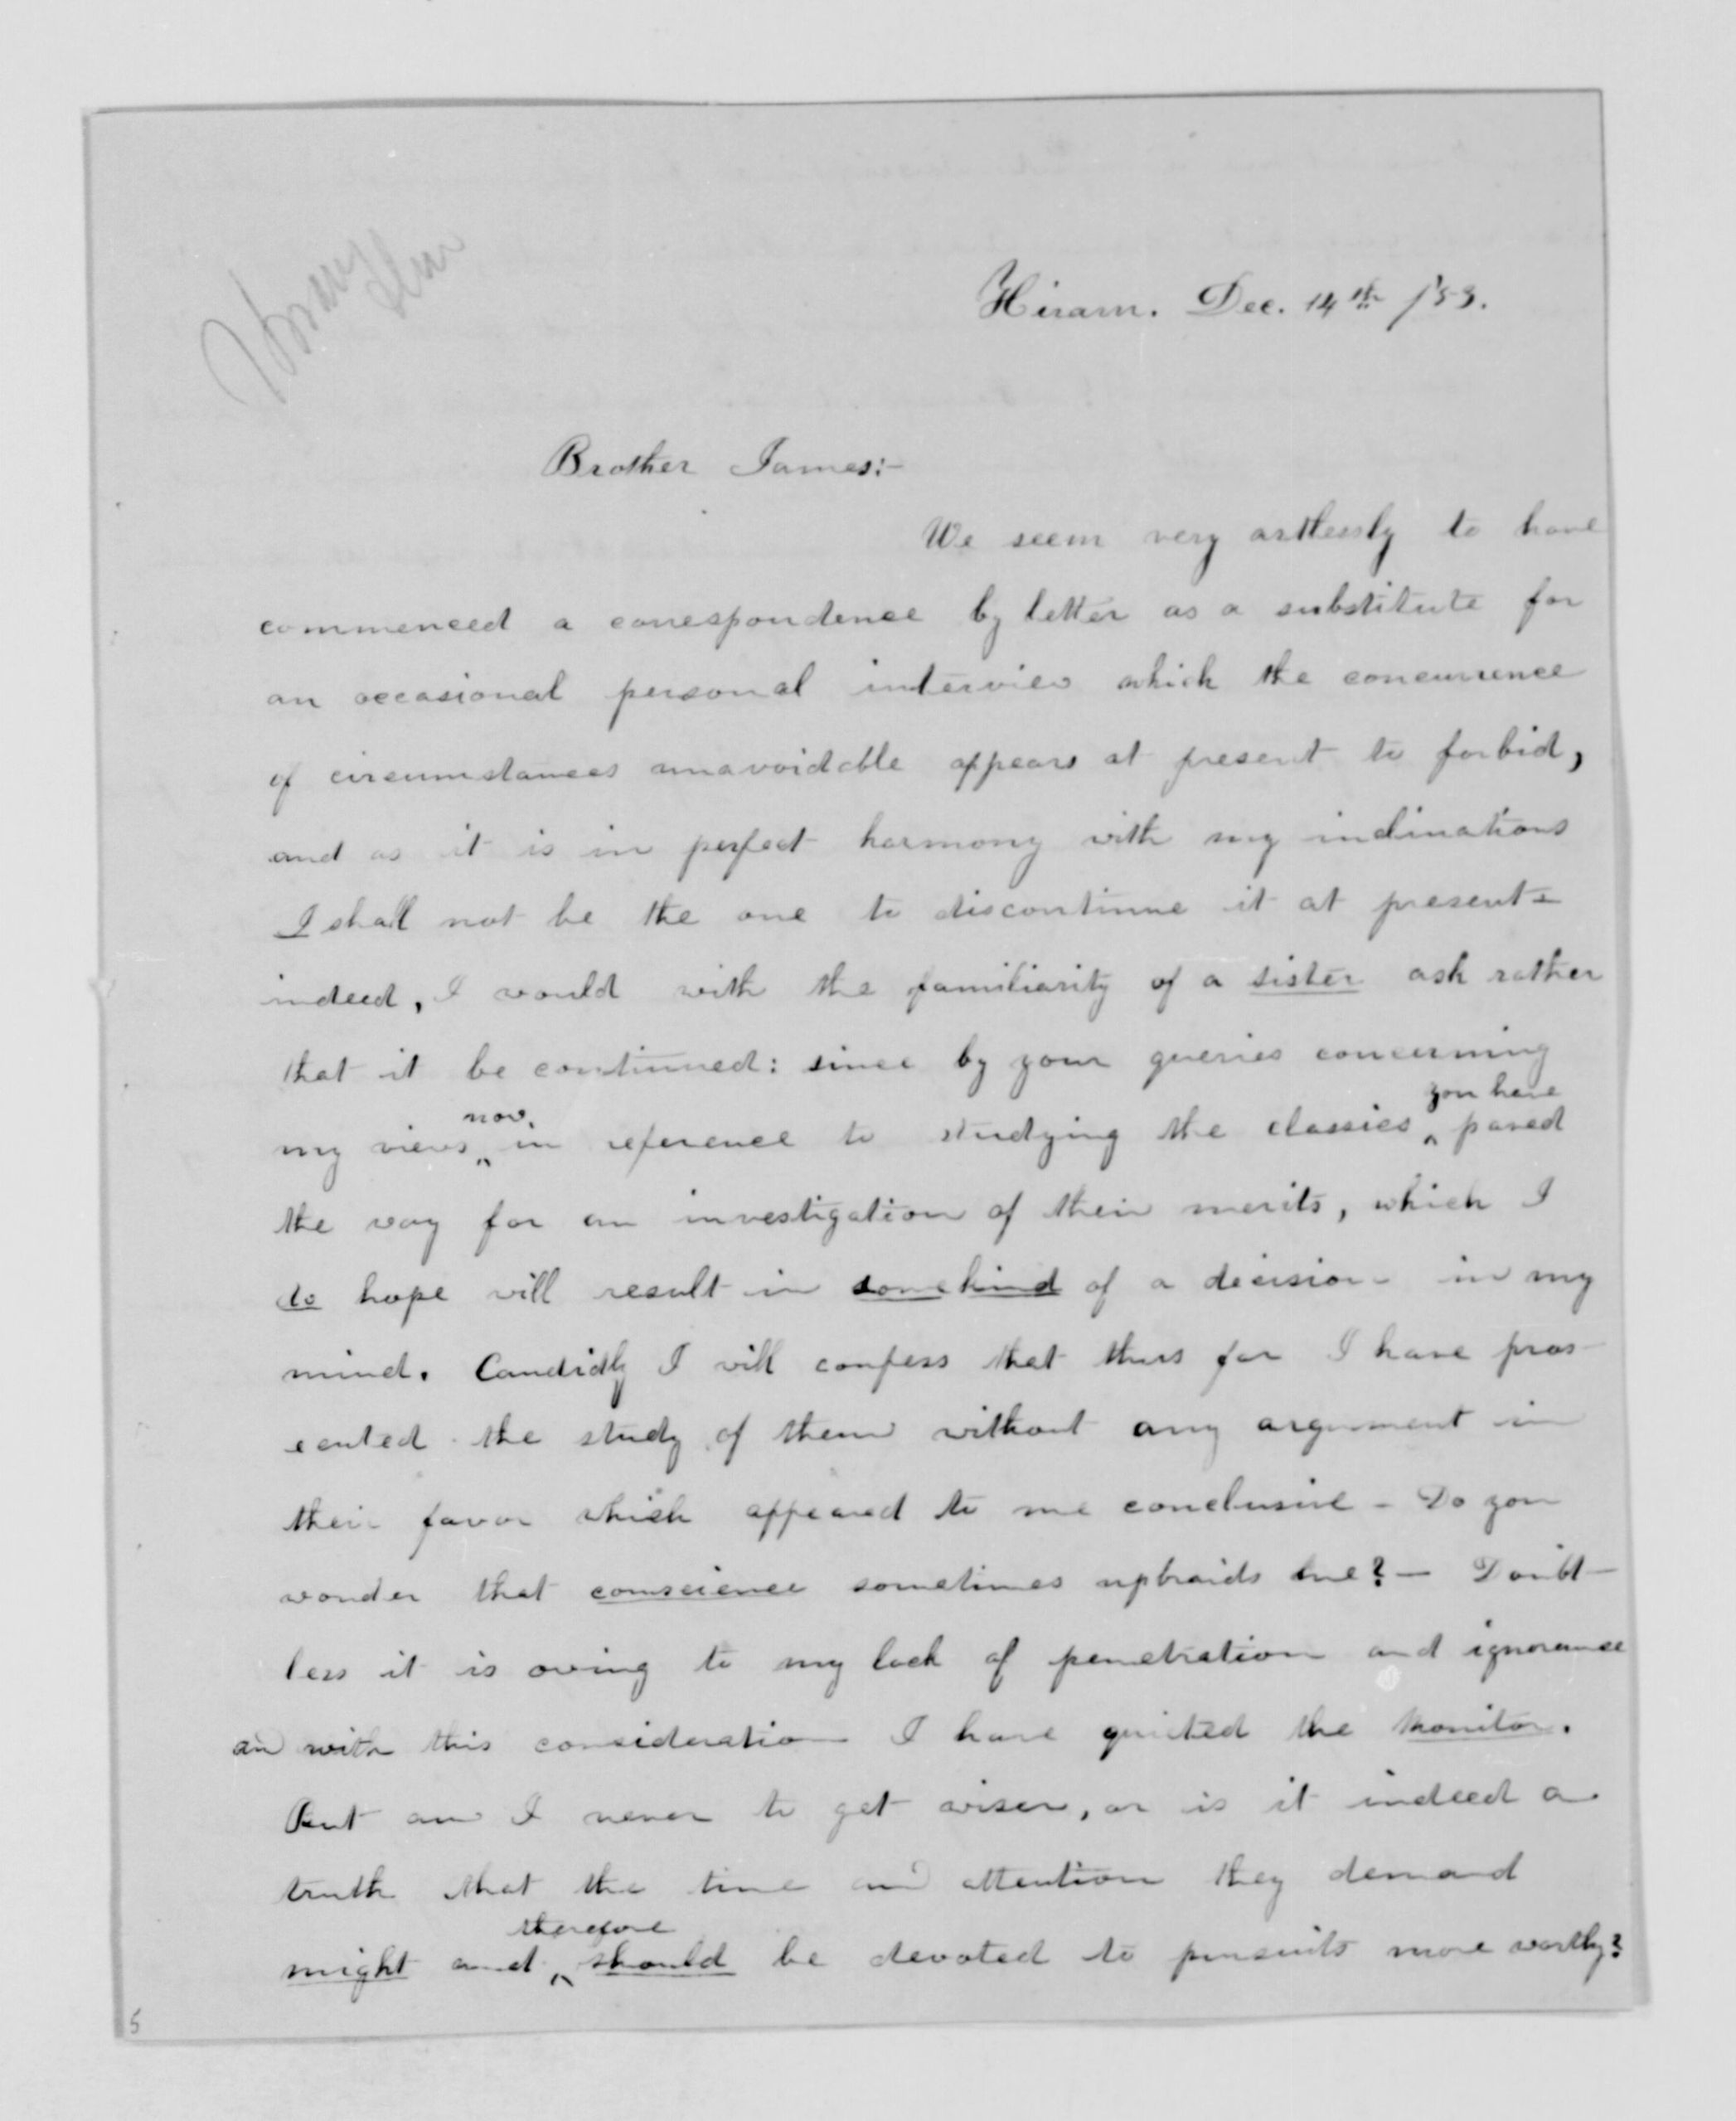 Hiram. Dec. 14th /53.
Brother James:-
We seem very artlessly to have
commenced a correspondence by letter as a substitute for
an occasional personal interview which the concurrence
of circumstances unavoidable appears at present to forbid,
and as it is in perfect harmony with my inclinations
I shall not be the one to discontinue it at present-
indeed, I would with the familiarity of a sister ask rather
that it be continued: since by your queries concerning
you have
now,
my views ‸ in reference to studying the classics ‸ paved
the way for an investigation of their merits, which I
do hope will result in some kind of a decision in my
mind. Candidly I will confess that thus far I have pros-
ecuted the study of them without any argument in
their favor which appeared to me conclusive - Do you
wonder that conscience sometimes upbraids me? - Doubt-
less it is owing to my lack of penetration and ignorance
and with this consideration I have quieted the monitor.
But am I never to get wiser, or is it indeed a
truth that the time and attention they demand
therefore
might and ‸ should be devoted to pursuits more worthy?
5